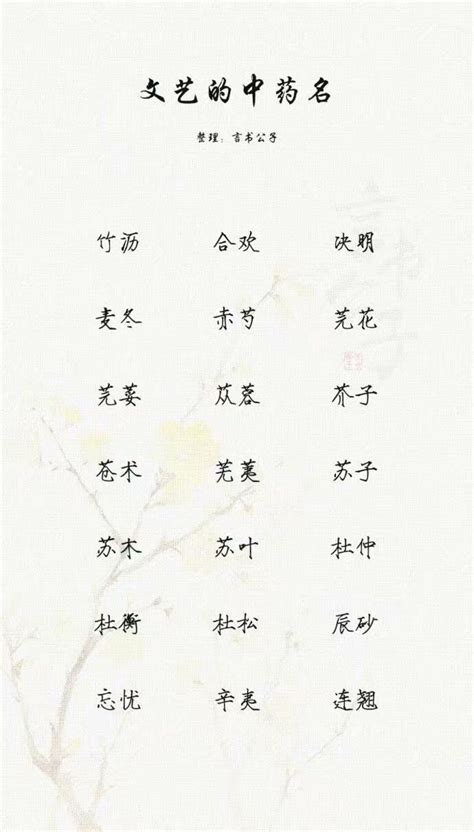 文艺的中药名
整理：言书公子
竹沥 合欢 决明
麦冬 赤芍 芫花
芫荽 苁蓉 芥子
苍术 芜荑 苏子
苏木 苏叶 杜仲
杜衡 杜松 辰砂
忘忧 辛夷 连翘
言书公子